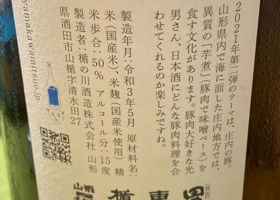 yamakawamitsu.co.jp
2021年第二弾のテーマは、庄内の豚。
山形県内で海に面した庄内地方では、
異質の「芋煮」（豚肉で味噌ベース）を
食す文化があります。豚肉大好きな光
男さん、日本酒にどんな豚肉料理を合
わせてくれるのか楽しみですね。
製造年月：令和3年5月 原材料名：
米（国産米）、米麹（国産米使用）精
米歩合：50% アルコール分：15度
製造者：楯の川酒造株式会社 山形
県酒田市山楯字清水田27
男
東
楯
山形